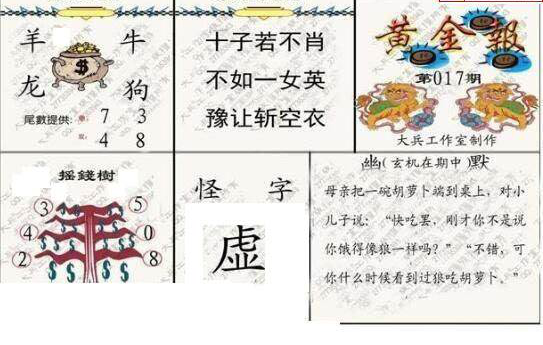 羊 牛
龙 狗
尾數提供: 單: 7 3
双: 4 8
十子若不肖
不如一女英
豫让斩空衣
黄金報
第017期
大兵工作室制作
摇錢樹
3 5
4 0
2 8
怪 字
虚
幽(玄机在期中)默
母亲把一碗胡萝卜端到桌上，对小
儿子说：“快吃罢，刚才你不是说
你饿得像狼一样吗？”“不错，可
你什么时候看到过狼吃胡萝卜。”